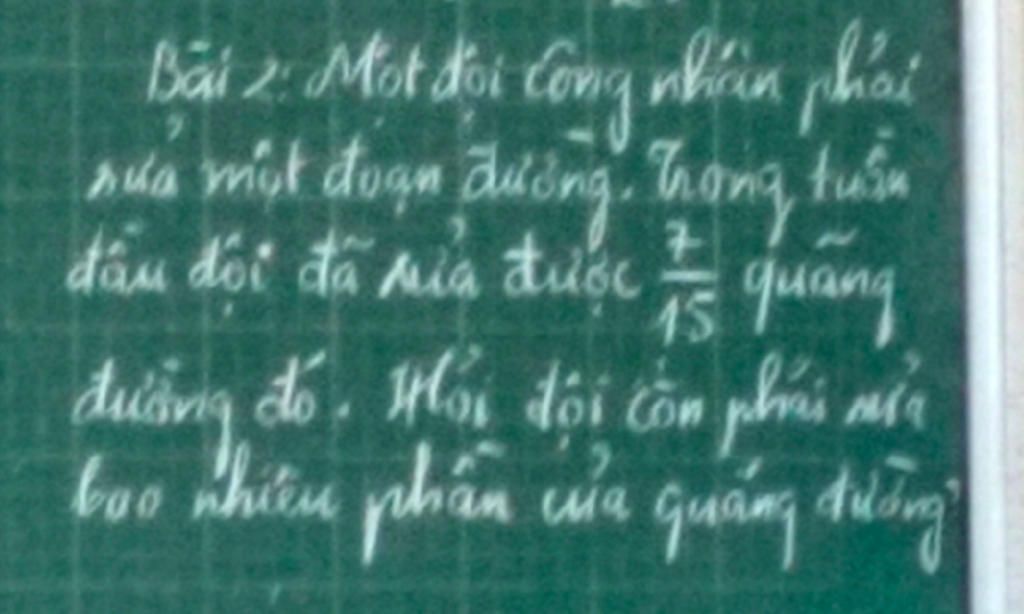 Bài 2: Một đội công nhân phải
sửa một đoạn đường. Trong tuần
đầu đội đã sửa được 7/15 quãng
đường đó. Hỏi đội còn phải sửa
bao nhiêu phần của quãng đường?